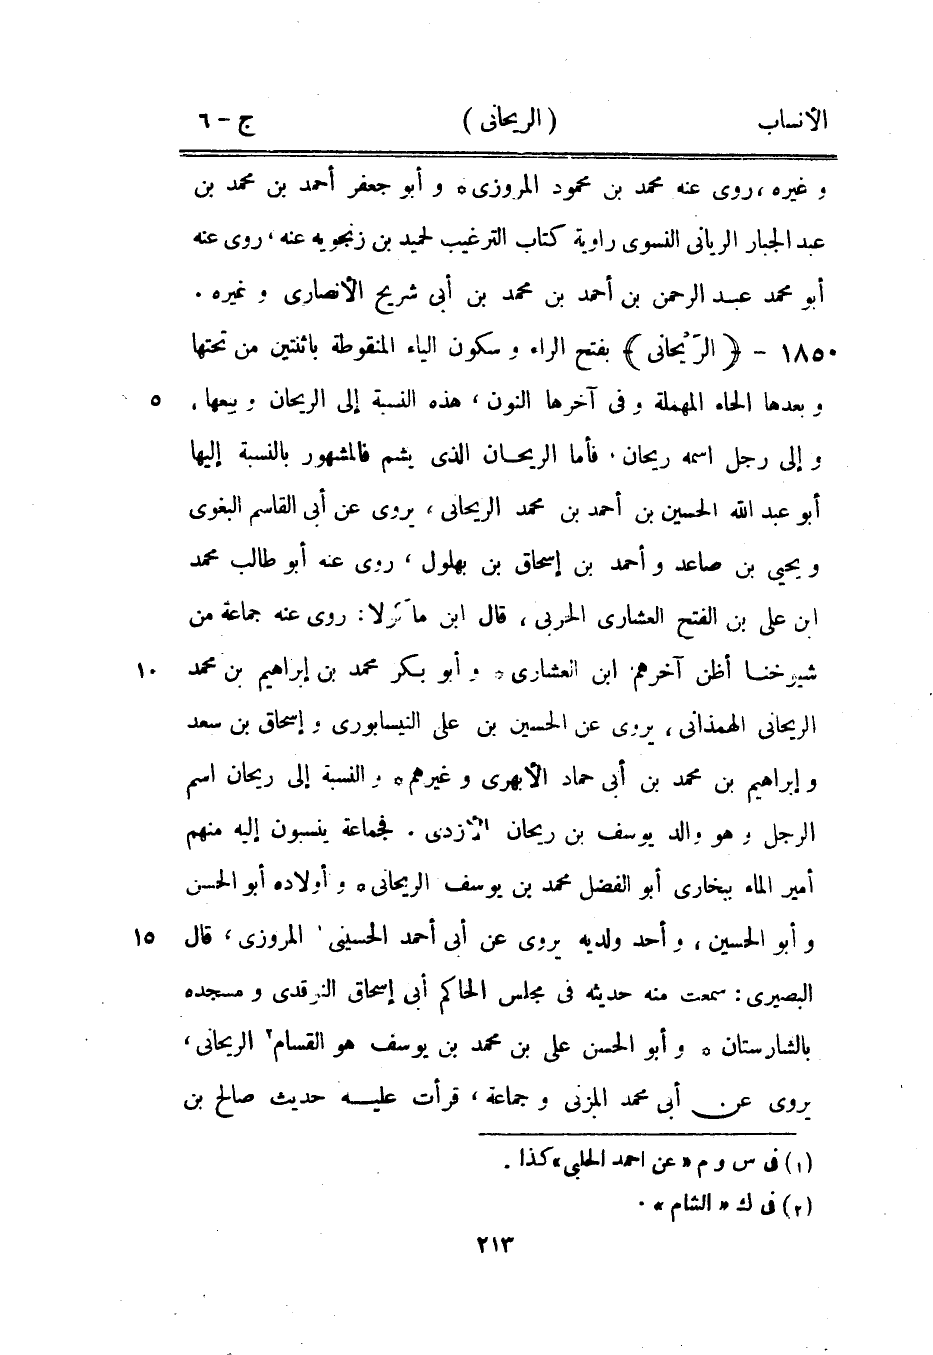 الأنساب (الريحانى) ج - ٦
و غيره، روى عنه محمد بن محمود المروزى ٥ و أبو جعفر أحمد بن محمد بن
عبد الجبار الريانى النسوى راوية كتاب الترغيب لحميد بن زنجويه عنه، روى عنه
أبو محمد عبد الرحمن بن أحمد بن محمد بن أبى شريح الأنصارى و غيره .
١٨٥٠ - ﴿ الرَّيْحانى ﴾ بفتح الراء و سكون الياء المنقوطة باثنتين من تحتها
و بعدها الحاء المهملة و فى آخرها النون، هذه النسبة إلى الريحان و بيعها، ٥
و إلى رجل اسمه ريحان. فأما الريحان الذى يشم فالمشهور بالنسبة إليها
أبو عبد الله الحسين بن أحمد بن محمد الريحانى، يروى عن أبى القاسم البغوى
و يحيى بن صاعد و أحمد بن إسحاق بن بهلول، روى عنه أبو طالب محمد
ابن على بن الفتح العشارى الحربى، قال ابن ماكولا: روى عنه جماعة من
شيوخنا أظن آخرهم ابن العشارى ٥ و أبو بكر محمد بن إبراهيم بن محمد ١٠
الريحانى الهمذانى، يروى عن الحسين بن على النيسابورى و إسحاق بن سعد
و إبراهيم بن محمد بن أبى حماد الأبهرى و غيرهم ٥ و النسبة إلى ريحان اسم
الرجل و هو والد يوسف بن ريحان الأزدى . فجماعة ينسبون إليه منهم
أمير الماء ببخارى أبو الفضل محمد بن يوسف الريحانى ٥ و أولاده أبو الحسن
و أبو الحسين، و أحد ولديه يروى عن أبى أحمد الحسينى ١ المروزى، قال ١٥
البصيرى: سمعت منه حديثه فى مجلس الحاكم أبى إسحاق النوقدى و مسجده
بالشارستان ٥ و أبو الحسن على بن محمد بن يوسف هو القسام ٢ الريحانى،
يروى عن أبى محمد المزنى و جماعة، قرأت عليه حديث صالح بن
(١) فى س و م « عن احمد الحلبى » كذا .
(٢) فى ك « الشام » .
٢١٣